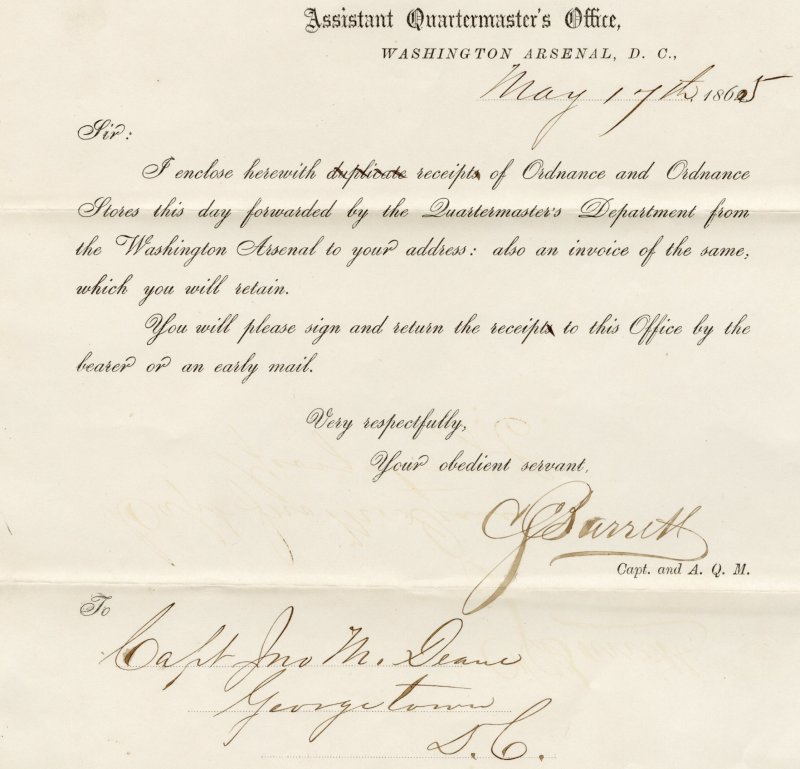 Assistant Quartermaster's Office,
WASHINGTON ARSENAL, D. C.,
May 17th 1865
Sir:
I enclose herewith duplicate receipts of Ordnance and Ordnance
Stores this day forwarded by the Quartermaster's Department from
the Washington Arsenal to your address: also an invoice of the same,
which you will retain.
You will please sign and return the receipts to this Office by the
bearer or an early mail.
Very respectfully,
Your obedient servant,
CJBarrett
Capt. and A. Q. M.
To
Capt Jno M. Deane
Georgetown
D.C.